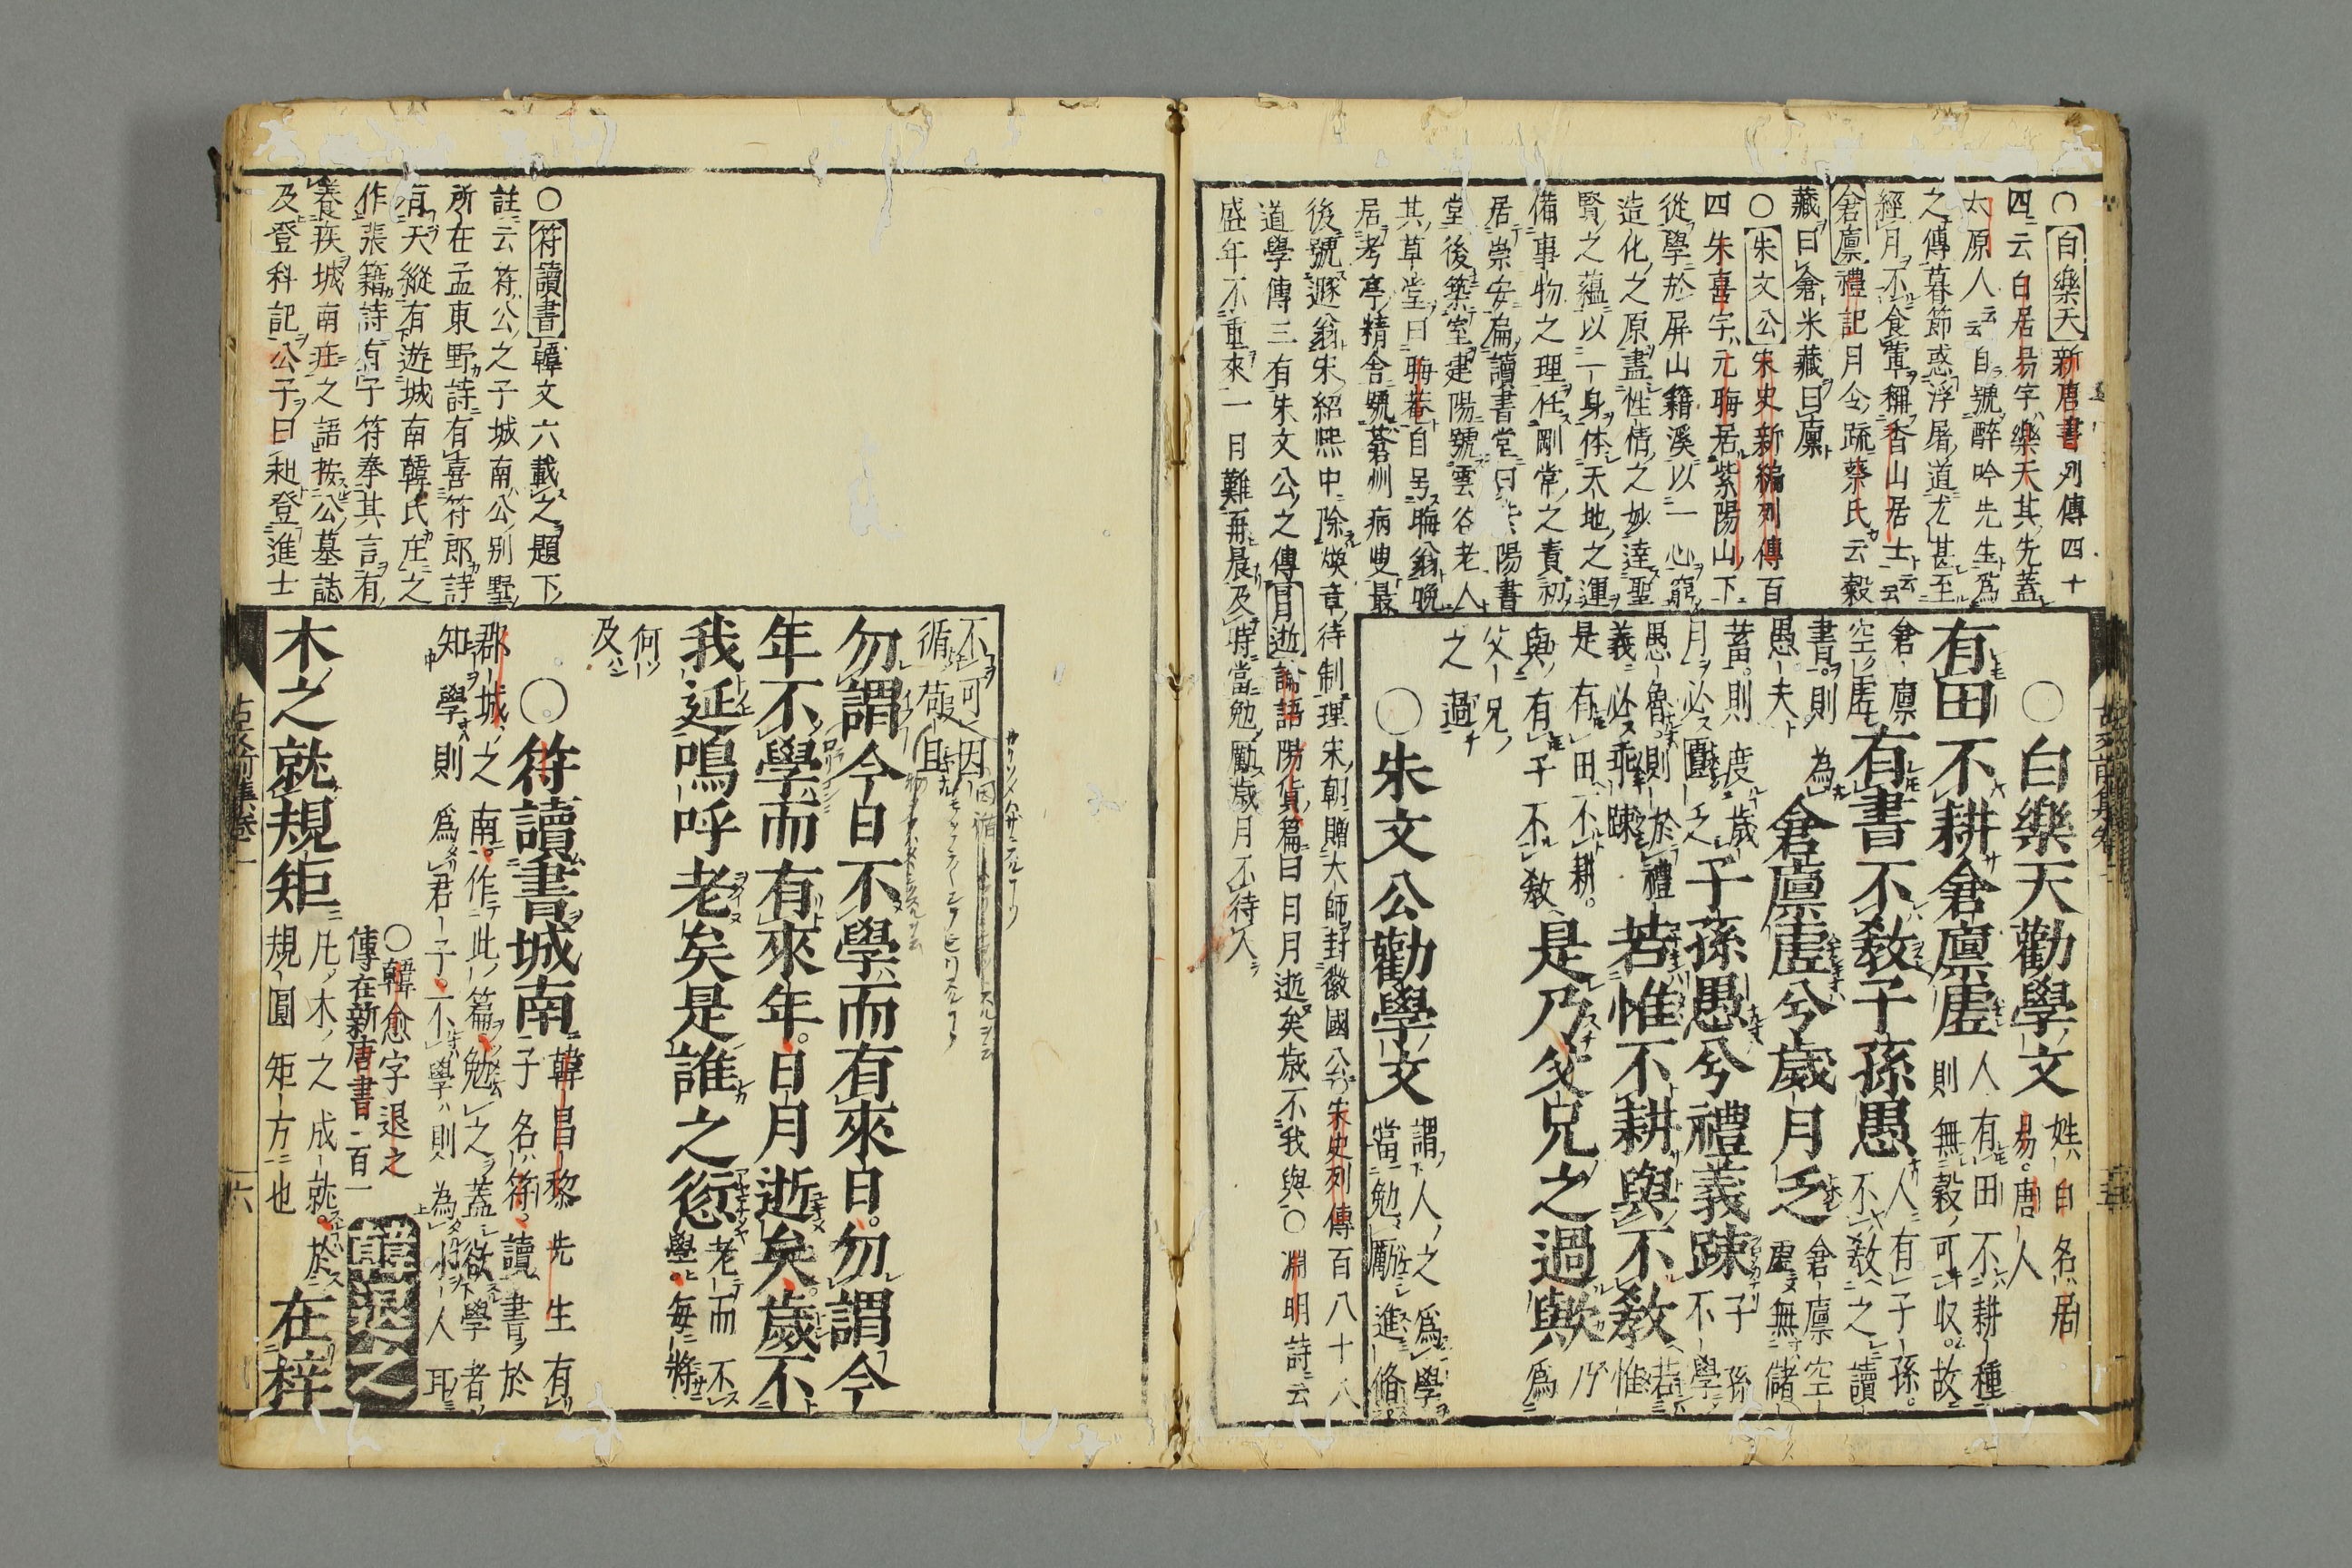 ○白樂天新唐書列傳四十
四云白居易字樂天其先蓋
太原人云云自號醉吟先生爲
之傳暮節惑浮屠道尤甚至
經月不食葷稱香山居士云云
倉廩禮記月令疏蔡氏云穀
藏曰倉米藏曰廩
○朱文公宋史新編列傳百
四朱熹字元晦居紫陽山下
從學於屏山籍溪以一心窮
造化之原盡性情之妙達聖
賢之蘊以一身体天地之運
備事物之理任剛常之責初
居崇安扁讀書堂曰紫陽書
堂後築室建陽號雲谷老人
其草堂曰晦菴自号晦翁晩
居考亭精舍號蒼洲病叟最
後號遯翁宋紹熙中除煥章待制理宋朝贈大師封徽國公朱史列傳百八十八
道學傳三有朱文公之傳日逝論語陽貨篇曰日月逝矣歳不我與○淵明詩云
盛年不重來一日難再晨及時當勉勵歳月不待人
○白樂天勸學文
姓白名居
易唐人
有田不耕倉廩虛
人有田不耕種
則無穀可収故
倉廩
空虛
有書不敎子孫愚
人有子孫
不敎之讀
書則
愚夫
為
倉廩虛兮歲月乏
倉廩空
虛無儲
蓄則度歳
月必匱乏
子孫愚兮禮義疎
子孫
不學
愚魯則於禮
義必乖疎
若惟不耕與不敎
若
惟
是有田不耕
與有子不敎
是乃父兄之過歟
乃
爲
父兄
之過
○朱文公勸學文
謂人之爲學
當勉勵進脩
不可因
循苟且
勿謂今日不學而有來日勿謂今
年不學而有來年日月逝矣歲不
我延嗚呼老矣是誰之愆
老而不
學每將
何
及
○符讀書城南
韓昌黎先生有
子名符讀書於
郡城之南作此篇勉之蓋欲學者
知學則爲君子不學則為小人耳
○韓愈字退之
傳在新唐書一百一
韓退之
木之就規矩
凡木之成就於
規圓矩方也
在梓
○符讀書韓文六載之題下
註云符公之子城南公別墅
所在孟東野詩有喜符郎詩
有天縱有遊城南韓氏庄之
作張籍詩有子符奉其言有
養疾城南莊之語按公墓誌
及登科記公子曰昶登進士
古文前集卷一
六